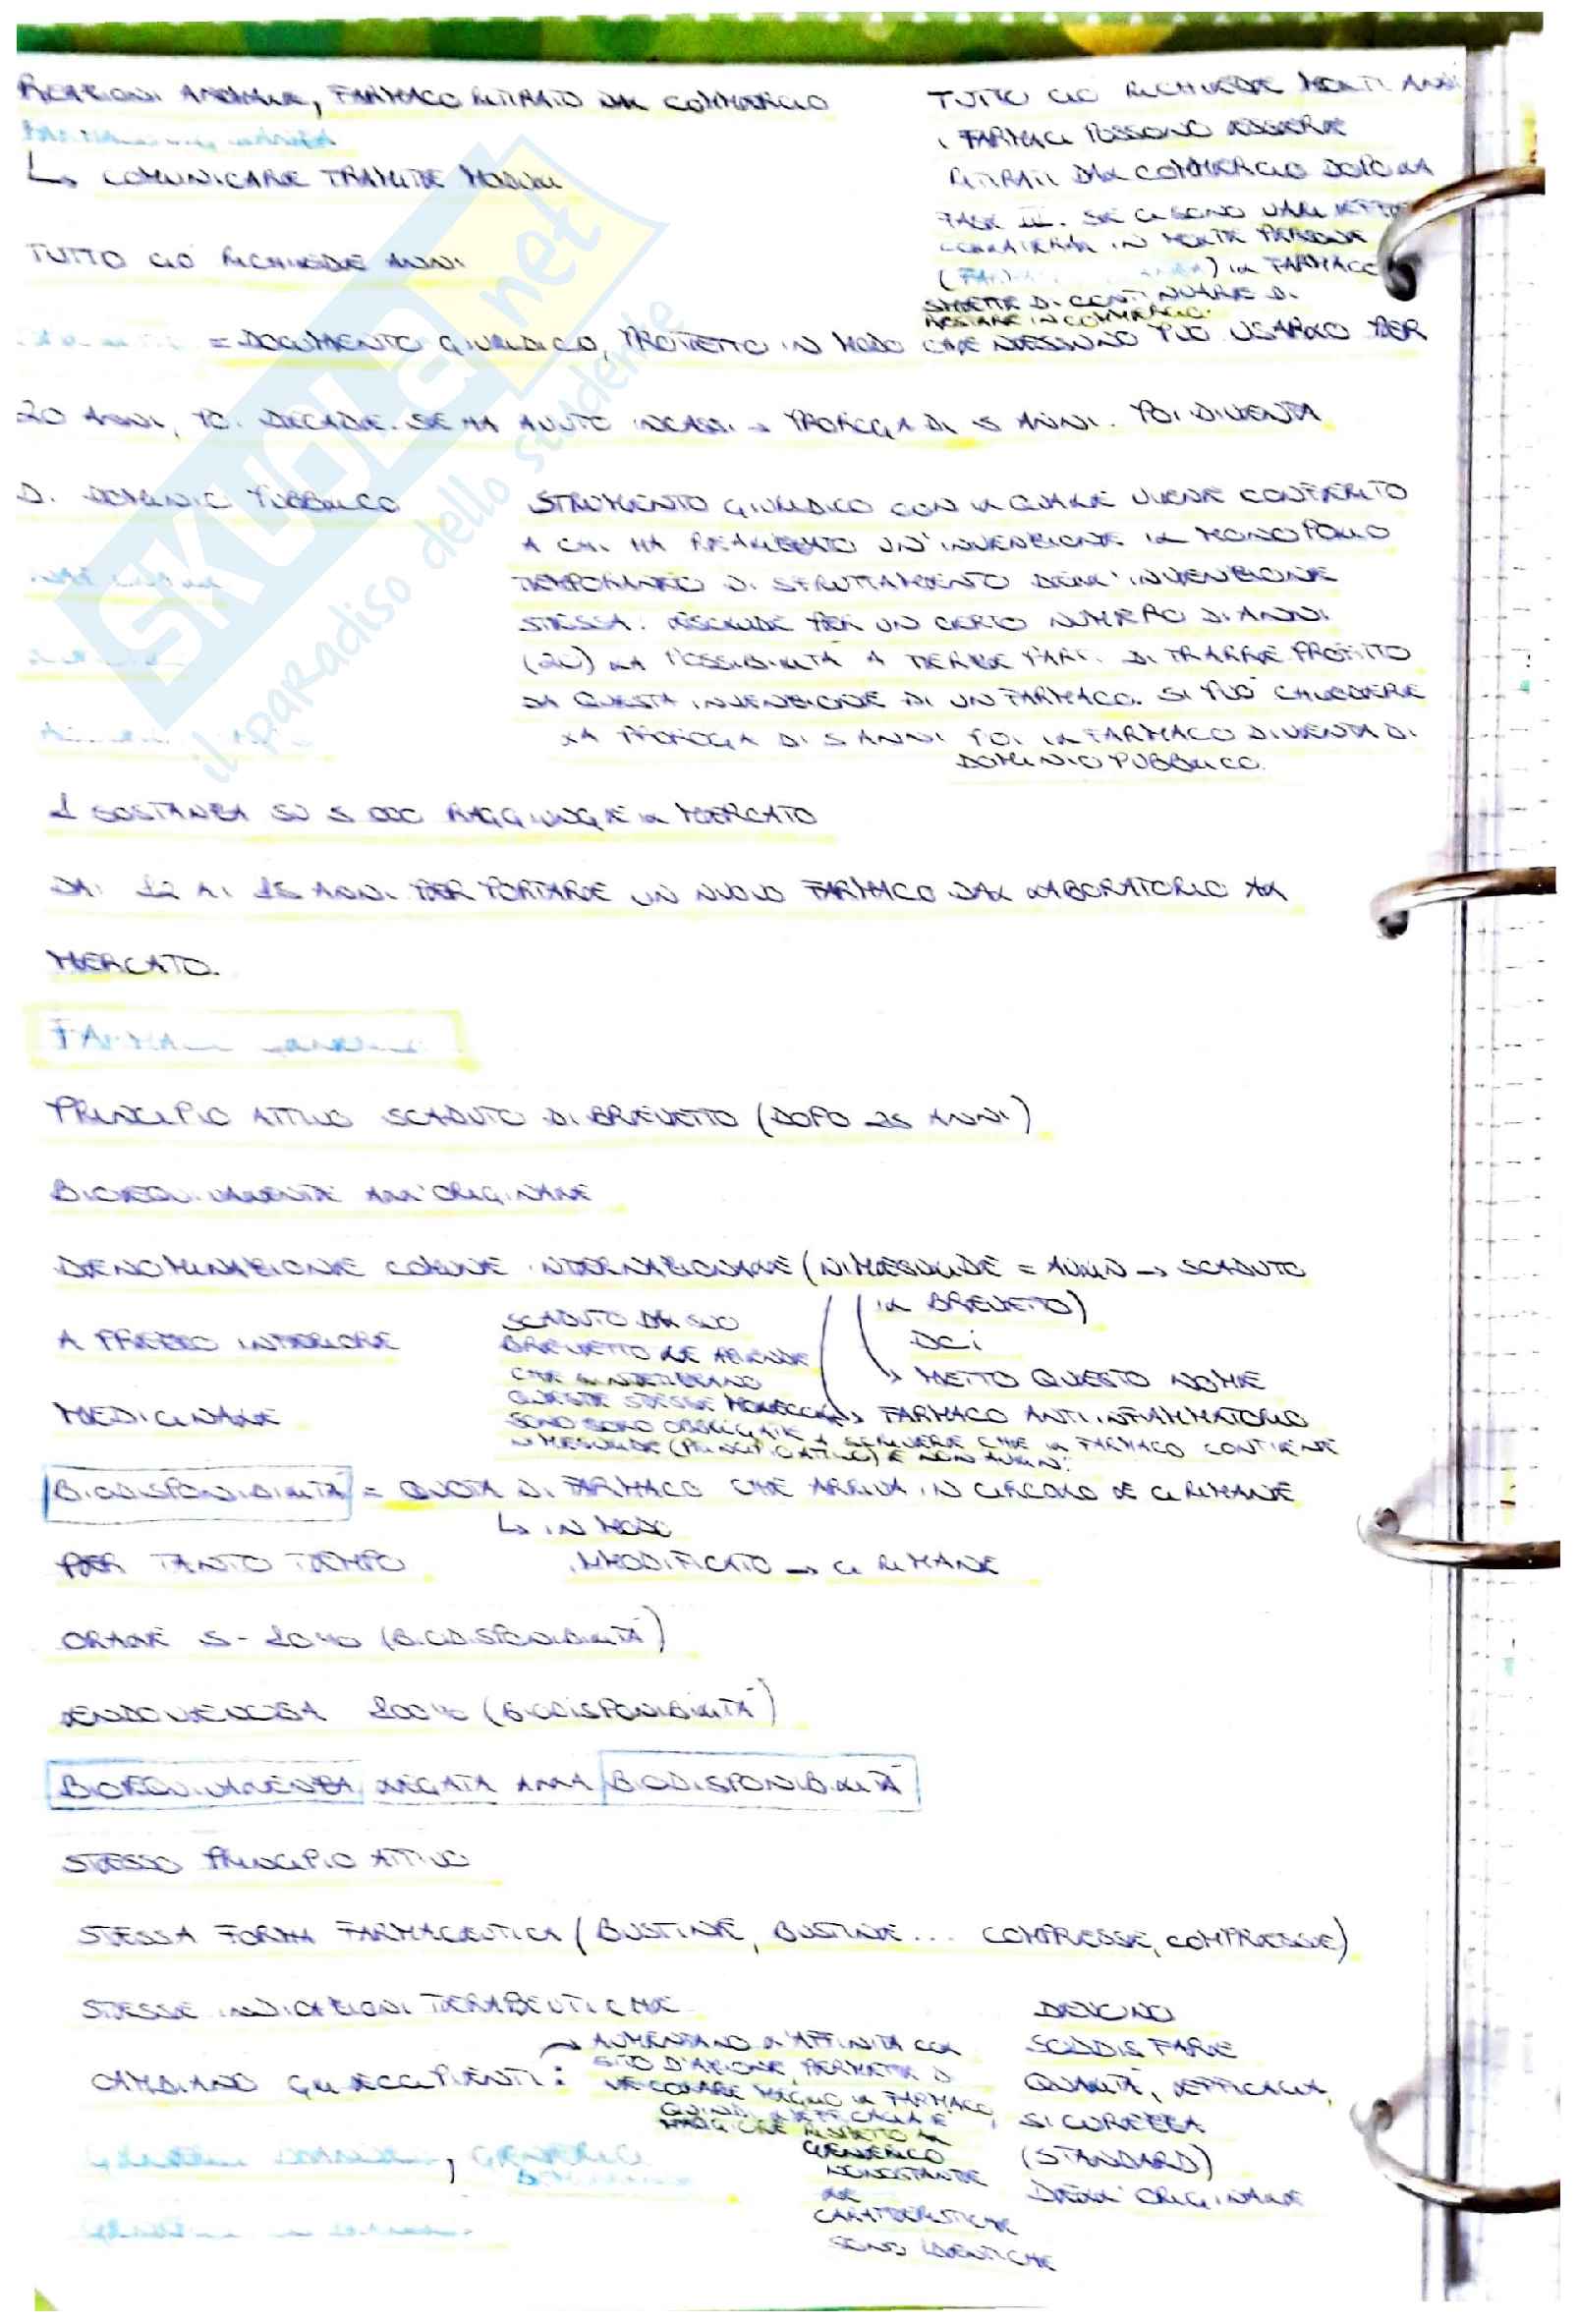 REAZIONI ANOMALE, FARMACO RITIRATO DAL COMMERCIO
↳ COMUNICARE TRAMITE MODULI
TUTTO CIÒ RICHIEDE ANNI
TUTTO CIÒ RICHIEDE MOLTI ANNI
I FARMACI POSSONO ESSERE
RITIRATI DAL COMMERCIO DOPO LA
FASE III. SE CI SONO VARI EFFETTI
COLLATERALI IN MOLTE PERSONE
( ) IL FARMACO
SMETTE DI CONTINUARE DI
RESTARE IN COMMERCIO.
= DOCUMENTO GIURIDICO, PROTETTO IN MODO CHE NESSUNO PUÒ USARLO PER
20 ANNI, POI DECADE. SE HA AVUTO INCASSI → PROROGA DI 5 ANNI. POI DIVENTA
DI DOMINIO PUBBLICO
STRUMENTO GIURIDICO CON IL QUALE VIENE CONFERITO
A CHI HA REALIZZATO UN'INVENZIONE IL MONOPOLIO
TEMPORANEO DI SFRUTTAMENTO DELL'INVENZIONE
STESSA: ESCLUDE PER UN CERTO NUMERO DI ANNI
(20) LA POSSIBILITÀ A TERZE PARTI DI TRARRE PROFITTO
DA QUESTA INVENZIONE DI UN FARMACO. SI PUÒ CHIEDERE
LA PROROGA DI 5 ANNI POI IL FARMACO DIVENTA DI
DOMINIO PUBBLICO.
1 SOSTANZA SU 5 000 RAGGIUNGE IL MERCATO
DAI 12 AI 15 ANNI PER PORTARE UN NUOVO FARMACO DAL LABORATORIO AL
MERCATO.
FARMACI
PRINCIPIO ATTIVO SCADUTO DI BREVETTO (DOPO 25 ANNI)
BIOEQUIVALENTE ALL'ORIGINALE
DENOMINAZIONE COMUNE INTERNAZIONALE (NIMESULIDE = AULIN → SCADUTO
IL BREVETTO)
DCI
↳ METTO QUESTO NOME
A PREZZO INFERIORE
SCADUTO DAL SUO
BREVETTO LE AZIENDE
CHE SINTETIZZANO
QUESTE STESSE MOLECOLE → FARMACO ANTIINFIAMMATORIO
SONO SOLO OBBLIGATE A SCRIVERE CHE IL FARMACO CONTIENE
NIMESULIDE (PRINCIPIO ATTIVO) E NON AULIN!
MEDICINALE
BIODISPONIBILITÀ = QUOTA DI FARMACO CHE ARRIVA IN CIRCOLO E CI RIMANE
↳ IN MODO
PER TANTO TEMPO
IMMODIFICATO → CI RIMANE
ORALE 5-10% (BIODISPONIBILITÀ)
ENDOVENOSA 100% (BIODISPONIBILITÀ)
BIOEQUIVALENZA LEGATA ALLA BIODISPONIBILITÀ
STESSO PRINCIPIO ATTIVO
STESSA FORMA FARMACEUTICA (BUSTINE, BUSTINE... COMPRESSE, COMPRESSE)
STESSE INDICAZIONI TERAPEUTICHE
CAMBIANO GLI ECCIPIENTI:
→ AUMENTANO L'AFFINITÀ COL
SITO D'AZIONE, PERMETTE DI
VEICOLARE MEGLIO IL FARMACO,
QUINDI L'EFFICACIA È
MAGGIORE RISPETTO AL
GENERICO
NONOSTANTE
LE
CARATTERISTICHE
SONO IDENTICHE
DEVONO
SODDISFARE
QUALITÀ, EFFICACIA,
SICUREZZA
(STANDARD)
DELL'ORIGINALE
, GENERICO
SKUOLA.net
il paradiso dello studente